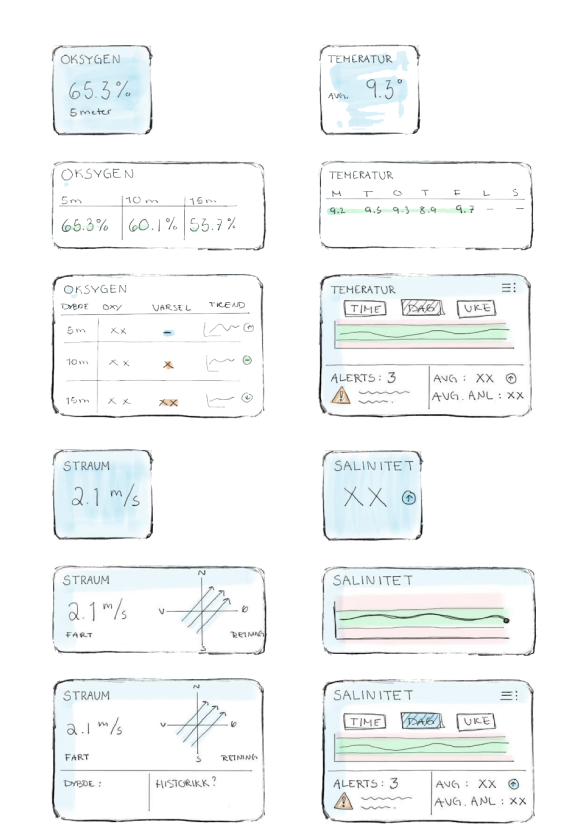 OKSYGEN
65.3%
5 meter
TEMERATUR
AVG. 9.3°
OKSYGEN
5m 10m 15m
65.3% 60.1% 55.7%
TEMERATUR
M T O T F L S
9.2 9.5 9.3 8.9 9.7 – –
OKSYGEN
DYBDE OXY VARSEL TREND
5m XX
10m XX X
15m XX XX
TEMERATUR
TIME DAG UKE
ALERTS: 3
!
AVG: XX
AVG. ANL: XX
STRAUM
2.1 m/s
SALINITET
XX
STRAUM
2.1 m/s
FART
N
V Ø
S
RETNING
SALINITET
STRAUM
2.1 m/s
FART
N
V Ø
S
RETNING
DYBDE:
HISTORIKK?
SALINITET
TIME DAG UKE
ALERTS: 3
!
AVG: XX
AVG. ANL: XX